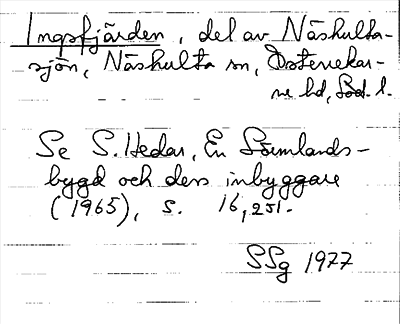 Ingesfjärden, del av Näshulta-
sjön, Näshulta sn, Österrekar-
ne hd, Söd. l.
Se S. Hedar, En Sörmlands-
bygd och dess inbyggare
(1965), s. 16, 251.
SSg 1977